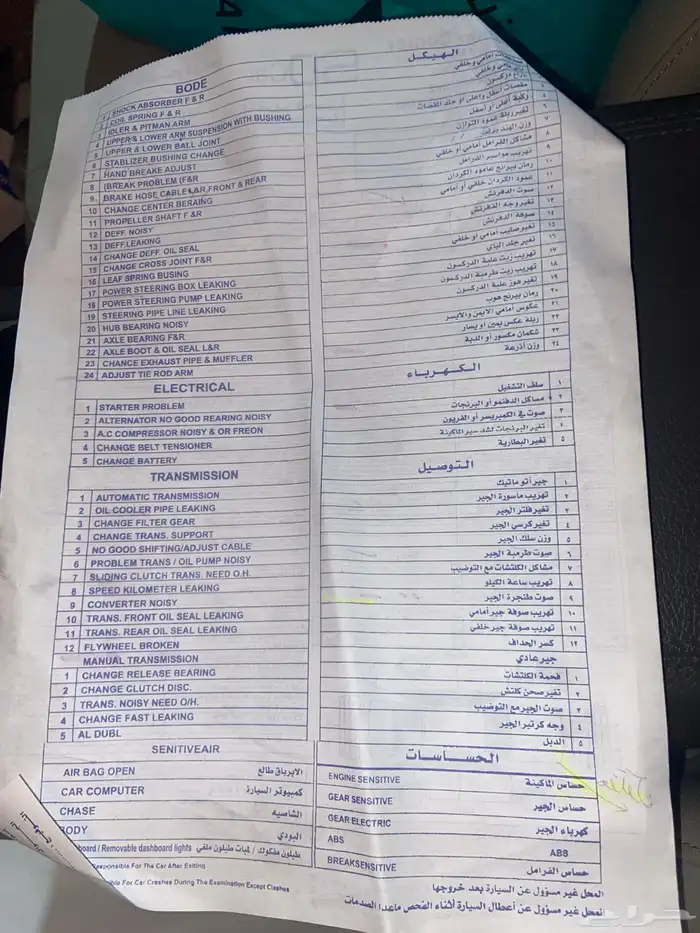 BODE
1 SHOCK ABSORBER F & R
2 COIL SPRING F & R
3 IDLER & PITMAN ARM
4 UPPER & LOWER ARM SUSPENSION WITH BUSHING
5 UPPER & LOWER BALL JOINT
6 STABILIZER BUSHING CHANGE
7 HAND BREAKE ADJUST
8 (BREAK PROBLEM (F&R
9 BRAKE HOSE CABLE L&R,FRONT & REAR
10 CHANGE CENTER BERAING
11 PROPELLER SHAFT F &R
12 DEFF NOISY
13 DEFF.LEAKING
14 CHANGE DEFF. OIL SEAL
15 CHANGE CROSS JOINT F&R
16 LEAF SPRING BUSING
17 POWER STEERING BOX LEAKING
18 POWER STEERING PUMP LEAKING
19 STEERING PIPE LINE LEAKING
20 HUB BEARING NOISY
21 AXLE BEARING F&R
22 AXLE BOOT & OIL SEAL L&R
23 CHANCE EXHAUST PIPE & MUFFLER
24 ADJUST TIE ROD ARM
ELECTRICAL
1 STARTER PROBLEM
2 ALTERNATOR NO GOOD REARING NOISY
3 A.C COMPRESSOR NOISY & OR FREON
4 CHANGE BELT TENSIONER
5 CHANGE BATTERY
TRANSMISSION
1 AUTOMATIC TRANSMISSION
2 OIL COOLER PIPE LEAKING
3 CHANGE FILTER GEAR
4 CHANGE TRANS. SUPPORT
5 NO GOOD SHIFTING/ADJUST CABLE
6 PROBLEM TRANS / OIL PUMP NOISY
7 SLIDING CLUTCH TRANS. NEED O.H.
8 SPEED KILOMETER LEAKING
9 CONVERTER NOISY
10 TRANS. FRONT OIL SEAL LEAKING
11 TRANS. REAR OIL SEAL LEAKING
12 FLYWHEEL BROKEN
MANUAL TRANSMISSION
1 CHANGE RELEASE BEARING
2 CHANGE CLUTCH DISC.
3 TRANS. NOISY NEED O/H.
4 CHANGE FAST LEAKING
5 AL DUBL
الهيكل
مقصات أسفل واعلى او جلد المقصات ٤
ركبة أعلى أو أسفل ٥
تغير ربلة عمود التوازن ٦
وزن الهند بريك ٧
مشاكل الفرامل أمامي او خلفي ٨
تهريب مواسير الفرامل ٩
رمان بيرنج عامود الكردان ١٠
عمود الكردان خلفي أو أمامي ١١
صوت الدفرنش ١٢
تغير وجه الدفرنش ١٣
صوفة الدفرنش ١٤
تغير صليب امامي او خلفي ١٥
تغير جلد الياي ١٦
تهريب زيت علبة الدركسون ١٧
تهريب زيت طرمبة الدركسون ١٨
تغير هوز علبة الدركسون ١٩
رمان بيرنج هوب ٢٠
عكوس امامي الأيمن والأيسر ٢١
ربلة عكس يمين او يسار ٢٢
شكمان مكسور أو الدبة ٢٣
وزن أذرعة ٢٤
الكهرباء
سلف التشغيل ١
مشاكل الدفنمو أو البرنجات ٢
صوت في الكمبريسر أو الفريون ٣
تغير البرنجات لشد سير الماكينة ٤
تغير البطارية ٥
التوصيل
جير أتوماتيك ١
تهريب ماسورة الجير ٢
تغير فلتر الجير ٣
تغير كرسي الجير ٤
وزن سلك الجير ٥
صوت طرمبة الجير ٦
مشاكل الكلتشات مع التوضيب ٧
تهريب ساعة الكيلو ٨
صوت طنجرة الجير ٩
تهريب صوفة جير أمامي ١٠
تهريب صوفة جير خلفي ١١
كسر الحداف ١٢
جير عادي
فحمة الكلتشات ١
تغير صحن كلتش ٢
صوت الجير مع التوضيب ٣
وجه كرتير الجير ٤
الدبل ٥
SENITIVEAIR
AIR BAG OPEN الايرباق طالع
CAR COMPUTER كمبيوتر السيارة
CHASE الشاسيه
BODY البودي
board / Removable dashboard lights طبلون مفكوك / لمبات طبلون ملغي
Responsible For The Car After Exiting
For Car Crashes During The Examination Except Clashes
الحساسات
ENGINE SENSITIVE حساس الماكينة
GEAR SENSITIVE حساس الجير
GEAR ELECTRIC كهرباء الجير
ABS ABS
BREAKSENSITIVE حساس الفرامل
المحل غير مسؤول عن السيارة بعد خروجها
المحل غير مسؤول عن أعطال السيارة أثناء الفحص ماعدا الصدمات
حراج